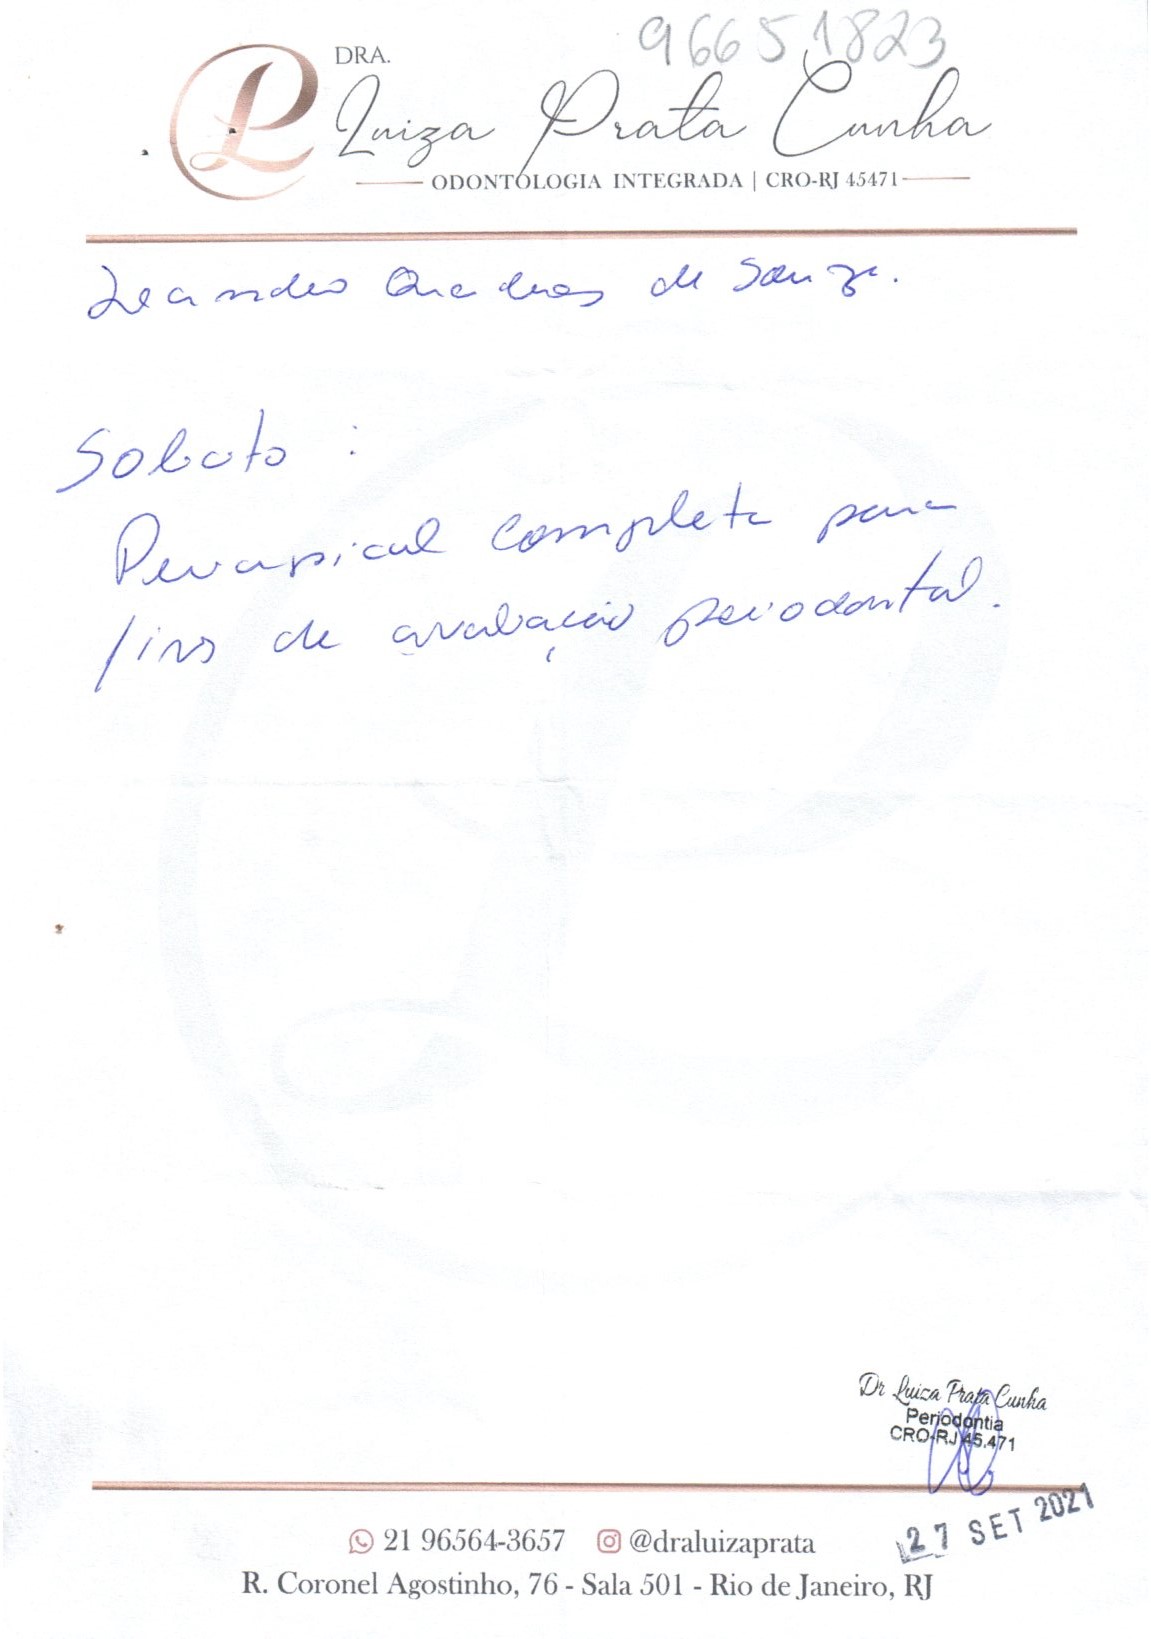 96651823
DRA.
Luiza Prata Cunha
ODONTOLOGIA INTEGRADA | CRO-RJ 45471
Leandro Quadros de Souza.
Solicito :
Periapical completa para
fins de avaliação periodontal.
Dr Luiza Prata Cunha
Periodontia
CRO-RJ 45.471
27 SET 2021
21 96564-3657 @draluizaprata
R. Coronel Agostinho, 76 - Sala 501 - Rio de Janeiro, RJ